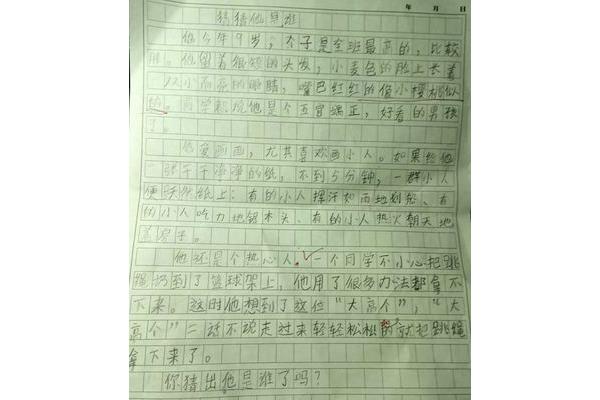 年 月 日
猜猜他是谁
他今年9岁,个子是全班最高的,比较
。他留着很短的头发,小麦色的脸上长着
双小而亮的眼睛,嘴巴红红的像小樱桃似
的。同学都说他是个五官端正,好看的男孩
了。
他爱画画,尤其喜欢画小人。如果给他
一张干干净净的纸,不到5分钟,一群小人
便跃然纸上:有的小人挥汗如雨地划船、有
的小人吃力地锯木头、有的小人热火朝天地
盖房子。
他还是个热心人。一个同学不小心把跳
绳扔到了篮球架上,他用了很多办法都拿不
下来。这时他想到了这位“大高个”,“大
高个”二话不说走过来轻轻松松的就把跳绳
拿下来了。
你猜出他是谁了吗?